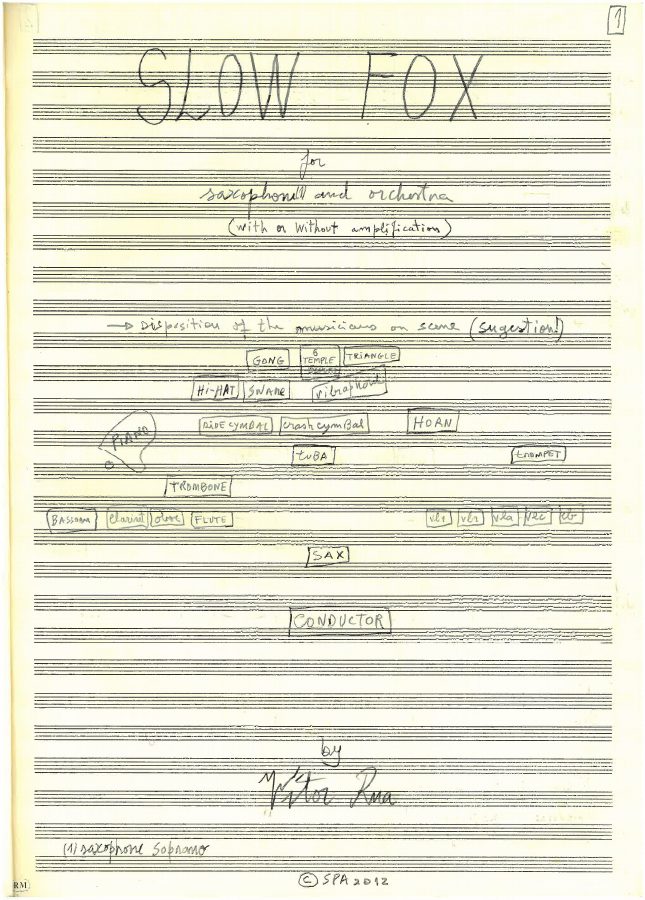 1
SLOW FOX
for
saxophone(1) and orchestra
(with or without amplification)
→ Disposition of the musicians on scene (sugestion!)
GONG 6 TEMPLE TRIANGLE
Hi-HAT SNARE vibraphone
PIANO RiDE CYMBAL crash cymBal HORN
tuBA tRUMPET
TROMBONE
BASSOON clarinet oboe FLUTE vl1 vl2 vla vlc cb
SAX
CONDUCTOR
by
Vítor Rua
(1) saxophone soprano
RM
© SPA 2012